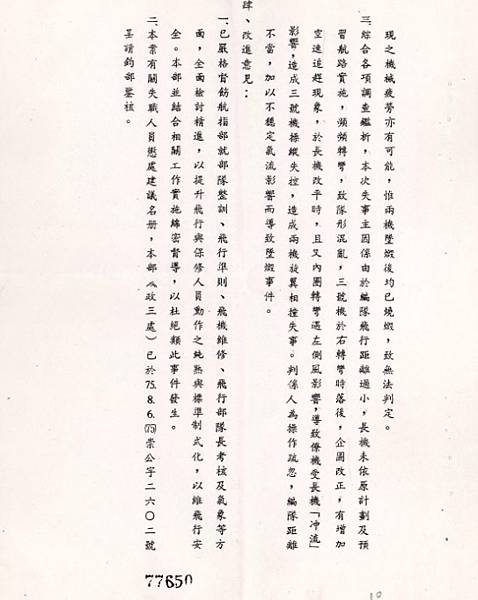 現之機械疲勞亦有可能，惟兩機墜燬後均已燒燬，致無法判定。
三、綜合各項調查鑑析，本次失事主因係由於編隊飛行距離過小，長機未依原計劃及預
習航路實施，頻頻轉彎，致隊形混亂，三號機於右轉彎時落後，企圖改正，有增加
空速追趕現象，於長機改平時，且又內圈轉彎遇左側風影響，導致僚機受長機「沖流」
影響，造成三號機操縱失控，造成兩機旋翼相撞失事。判係人為操作疏忽，編隊距離
不當，加以不穩定氣流影響而導致墜燬事件。
肆、改進意見：
一、已嚴格督飭航指部就部隊整訓、飛行準則、飛機維修、飛行部隊長考核及氣象等方
面，全面檢討精進，以提升飛行與保修人員動作之純熟與標準制式化，以維飛行安
全。本部並結合相關工作實施綿密督導，以杜絕類此事件發生。
二、本案有關失職人員懲處建議名册，本部（政三處）已於75.8.6.(75)崇公字二六〇二號
呈請鈞部鑒核。
77650
10